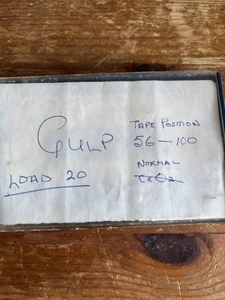 GULP
LOAD 20
TAPE POSITION
56-100
NORMAL